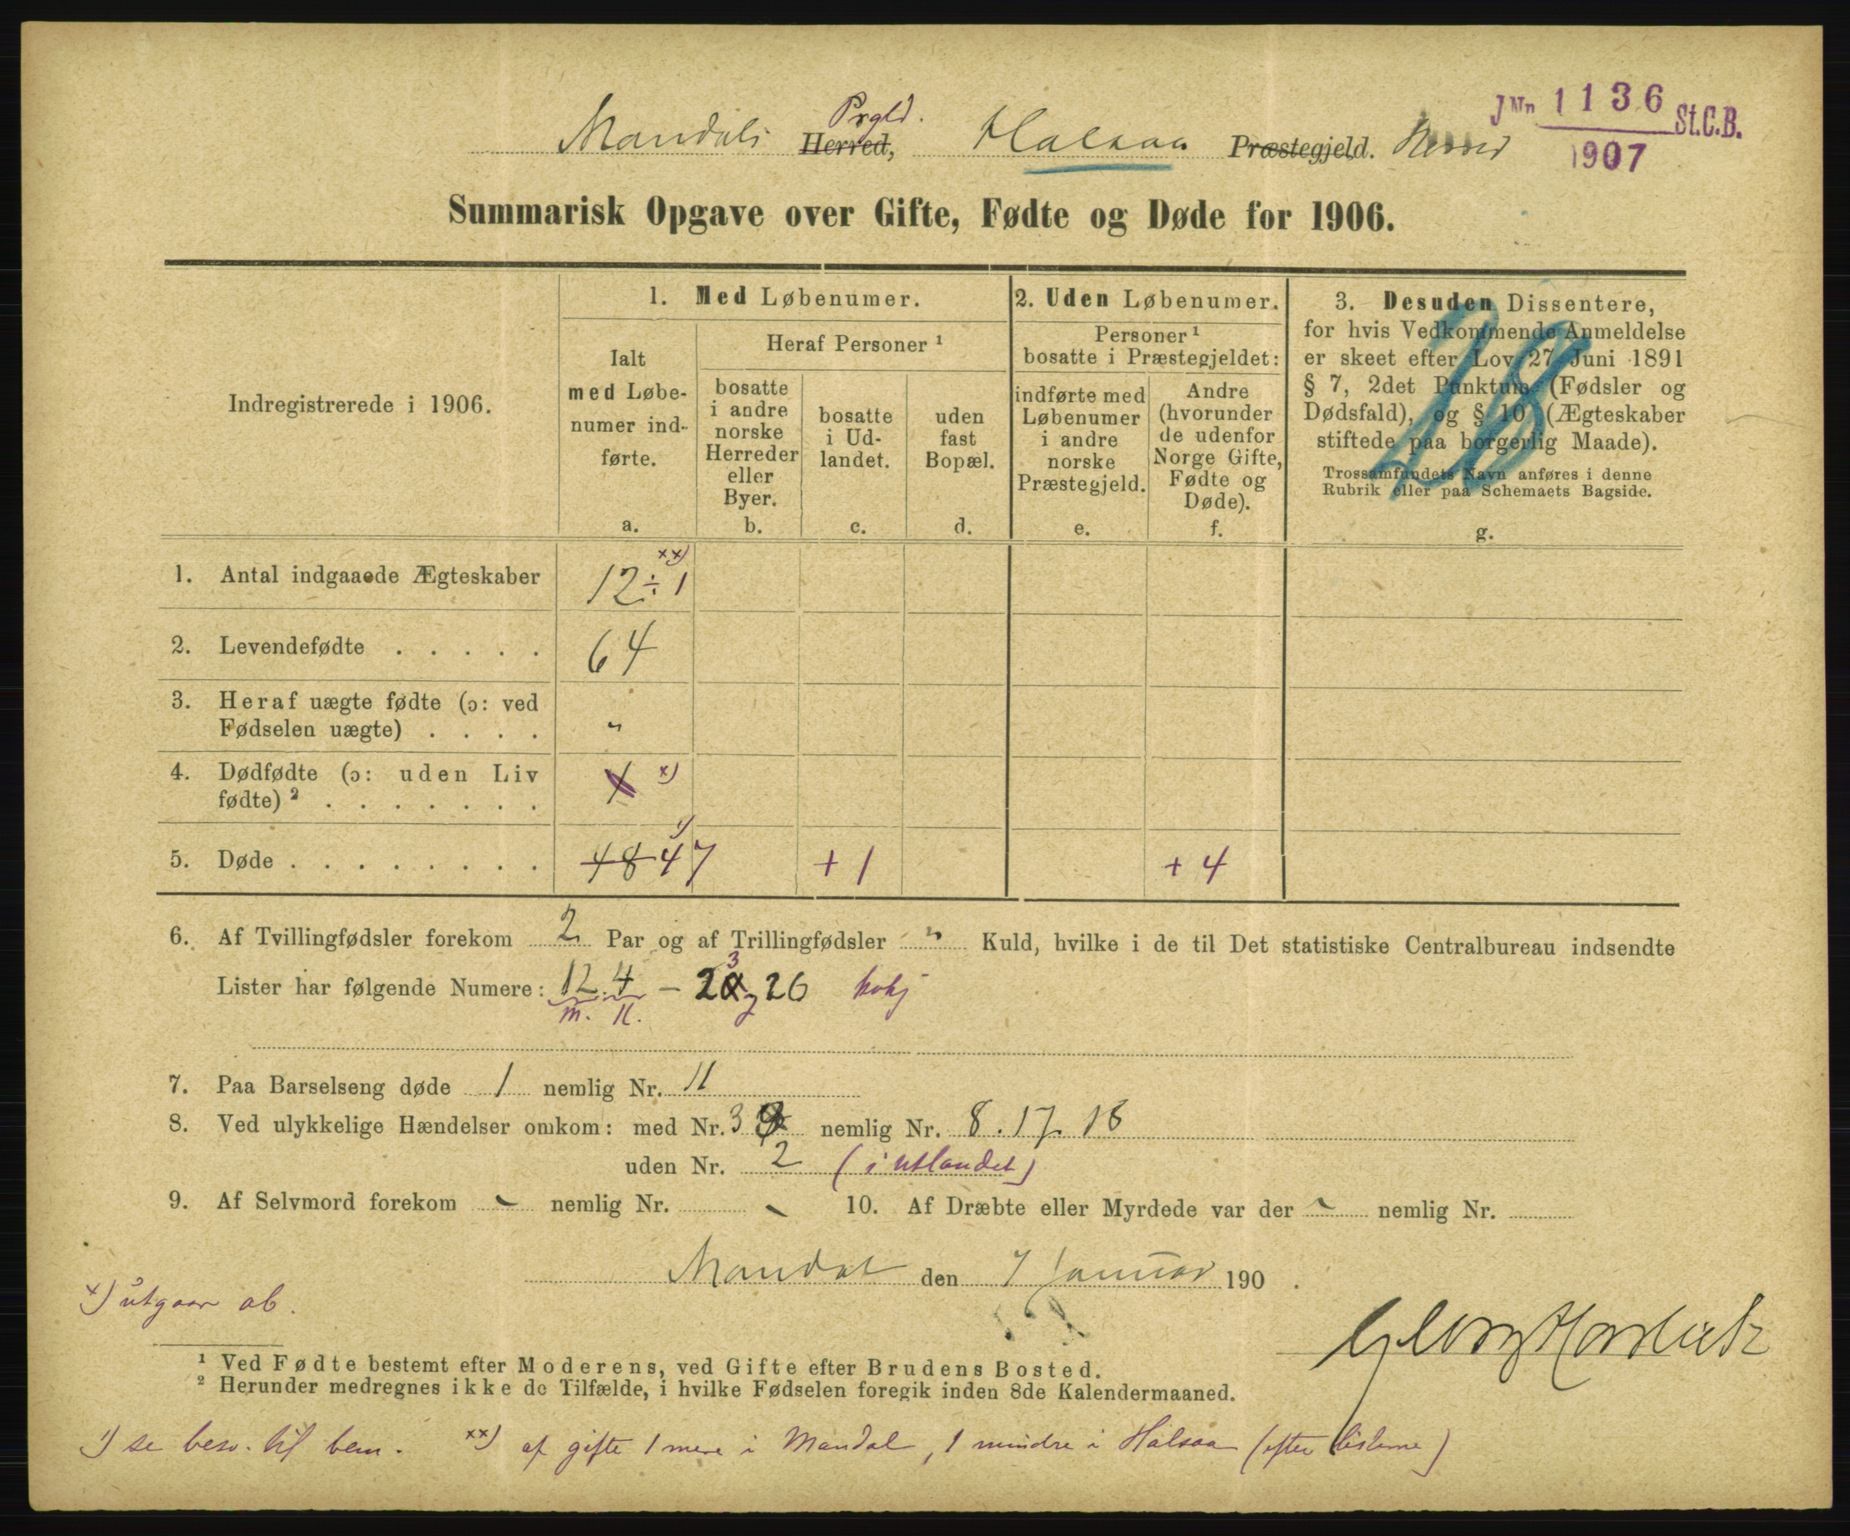 JNr. 1136 St.C.B.
1907
Mandals Herred, Prgld. Halsaa Præstegjeld. Herred
Summarisk Opgave over Gifte, Fødte og Døde for 1906.
28
Indregistrerede i 1906.
1. Med Løbenumer.
Ialt med Løbenumer indførte.
a.
Heraf Personer ¹
bosatte i andre norske Herreder eller Byer.
b.
bosatte i Udlandet.
c.
uden fast Bopæl.
d.
2. Uden Løbenumer.
Personer ¹ bosatte i Præstegjeldet:
indførte med Løbenumer i andre norske Præstegjeld.
e.
Andre (hvorunder de udenfor Norge Gifte, Fødte og Døde).
f.
3. Desuden Dissentere,
for hvis Vedkommende Anmeldelse
er skeet efter Lov 27 Juni 1891
§ 7, 2det Punktum (Fødsler og
Dødsfald), og § 10 (Ægteskaber
stiftede paa borgerlig Maade).
Trossamfundets Navn anføres i denne
Rubrik eller paa Schemaets Bagside.
g.
1. Antal indgaaede Ægteskaber 12 ÷ 1 xx)
2. Levendefødte . . . . . 64
3. Heraf uægte fødte (ɔ: ved
Fødselen uægte) . . . . "
4. Dødfødte (ɔ: uden Liv
fødte) ² . . . . . . . 1 x)
5. Døde . . . . . . . . 48 47 1) + 1 + 4
6. Af Tvillingfødsler forekom 2 Par og af Trillingfødsler " Kuld, hvilke i de til Det statistiske Centralbureau indsendte
Lister har følgende Numere: 12. 4 — 23 26
m. K.
7. Paa Barselseng døde 1 nemlig Nr. 11
8. Ved ulykkelige Hændelser omkom: med Nr. 3 nemlig Nr. 8. 17. 18
uden Nr. 2 (i utlandet)
9. Af Selvmord forekom - nemlig Nr. - 10. Af Dræbte eller Myrdede var der - nemlig Nr.
Mandal den 7 Januar 190 .
x) utgaar ab.
¹ Ved Fødte bestemt efter Moderens, ved Gifte efter Brudens Bosted.
² Herunder medregnes ikke de Tilfælde, i hvilke Fødselen foregik inden 8de Kalendermaaned.
1) se besv. til bem. xx) af gifte 1 mere i Mandal, 1 mindre i Halsaa (efter listerne)